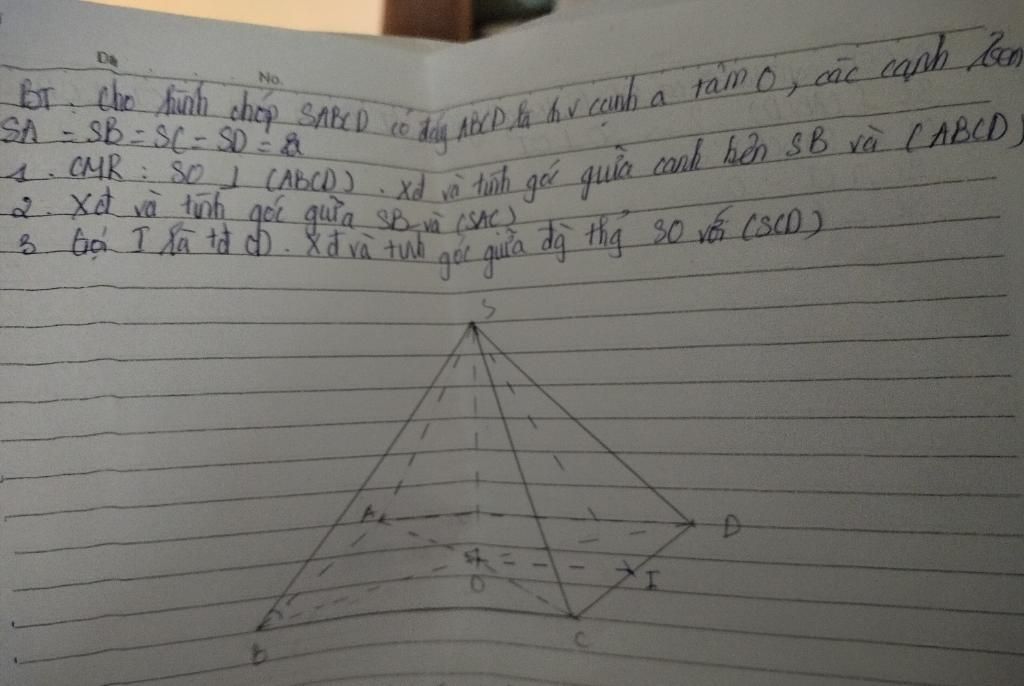 Da
No.
BT. Cho hình chóp SABCD có đáy ABCD là hv cạnh a tâm O, các cạnh bên
SA = SB = SC = SD = a
1. CMR: SO ⊥ (ABCD). Xđ và tính góc giữa cạnh bên SB và (ABCD)
2. Xđ và tính góc giữa SB và (SAC)
3 Gọi I là tđ CD. Xđ và tính góc giữa đg thg SO với (SCD)
S
A
D
O
I
B
C